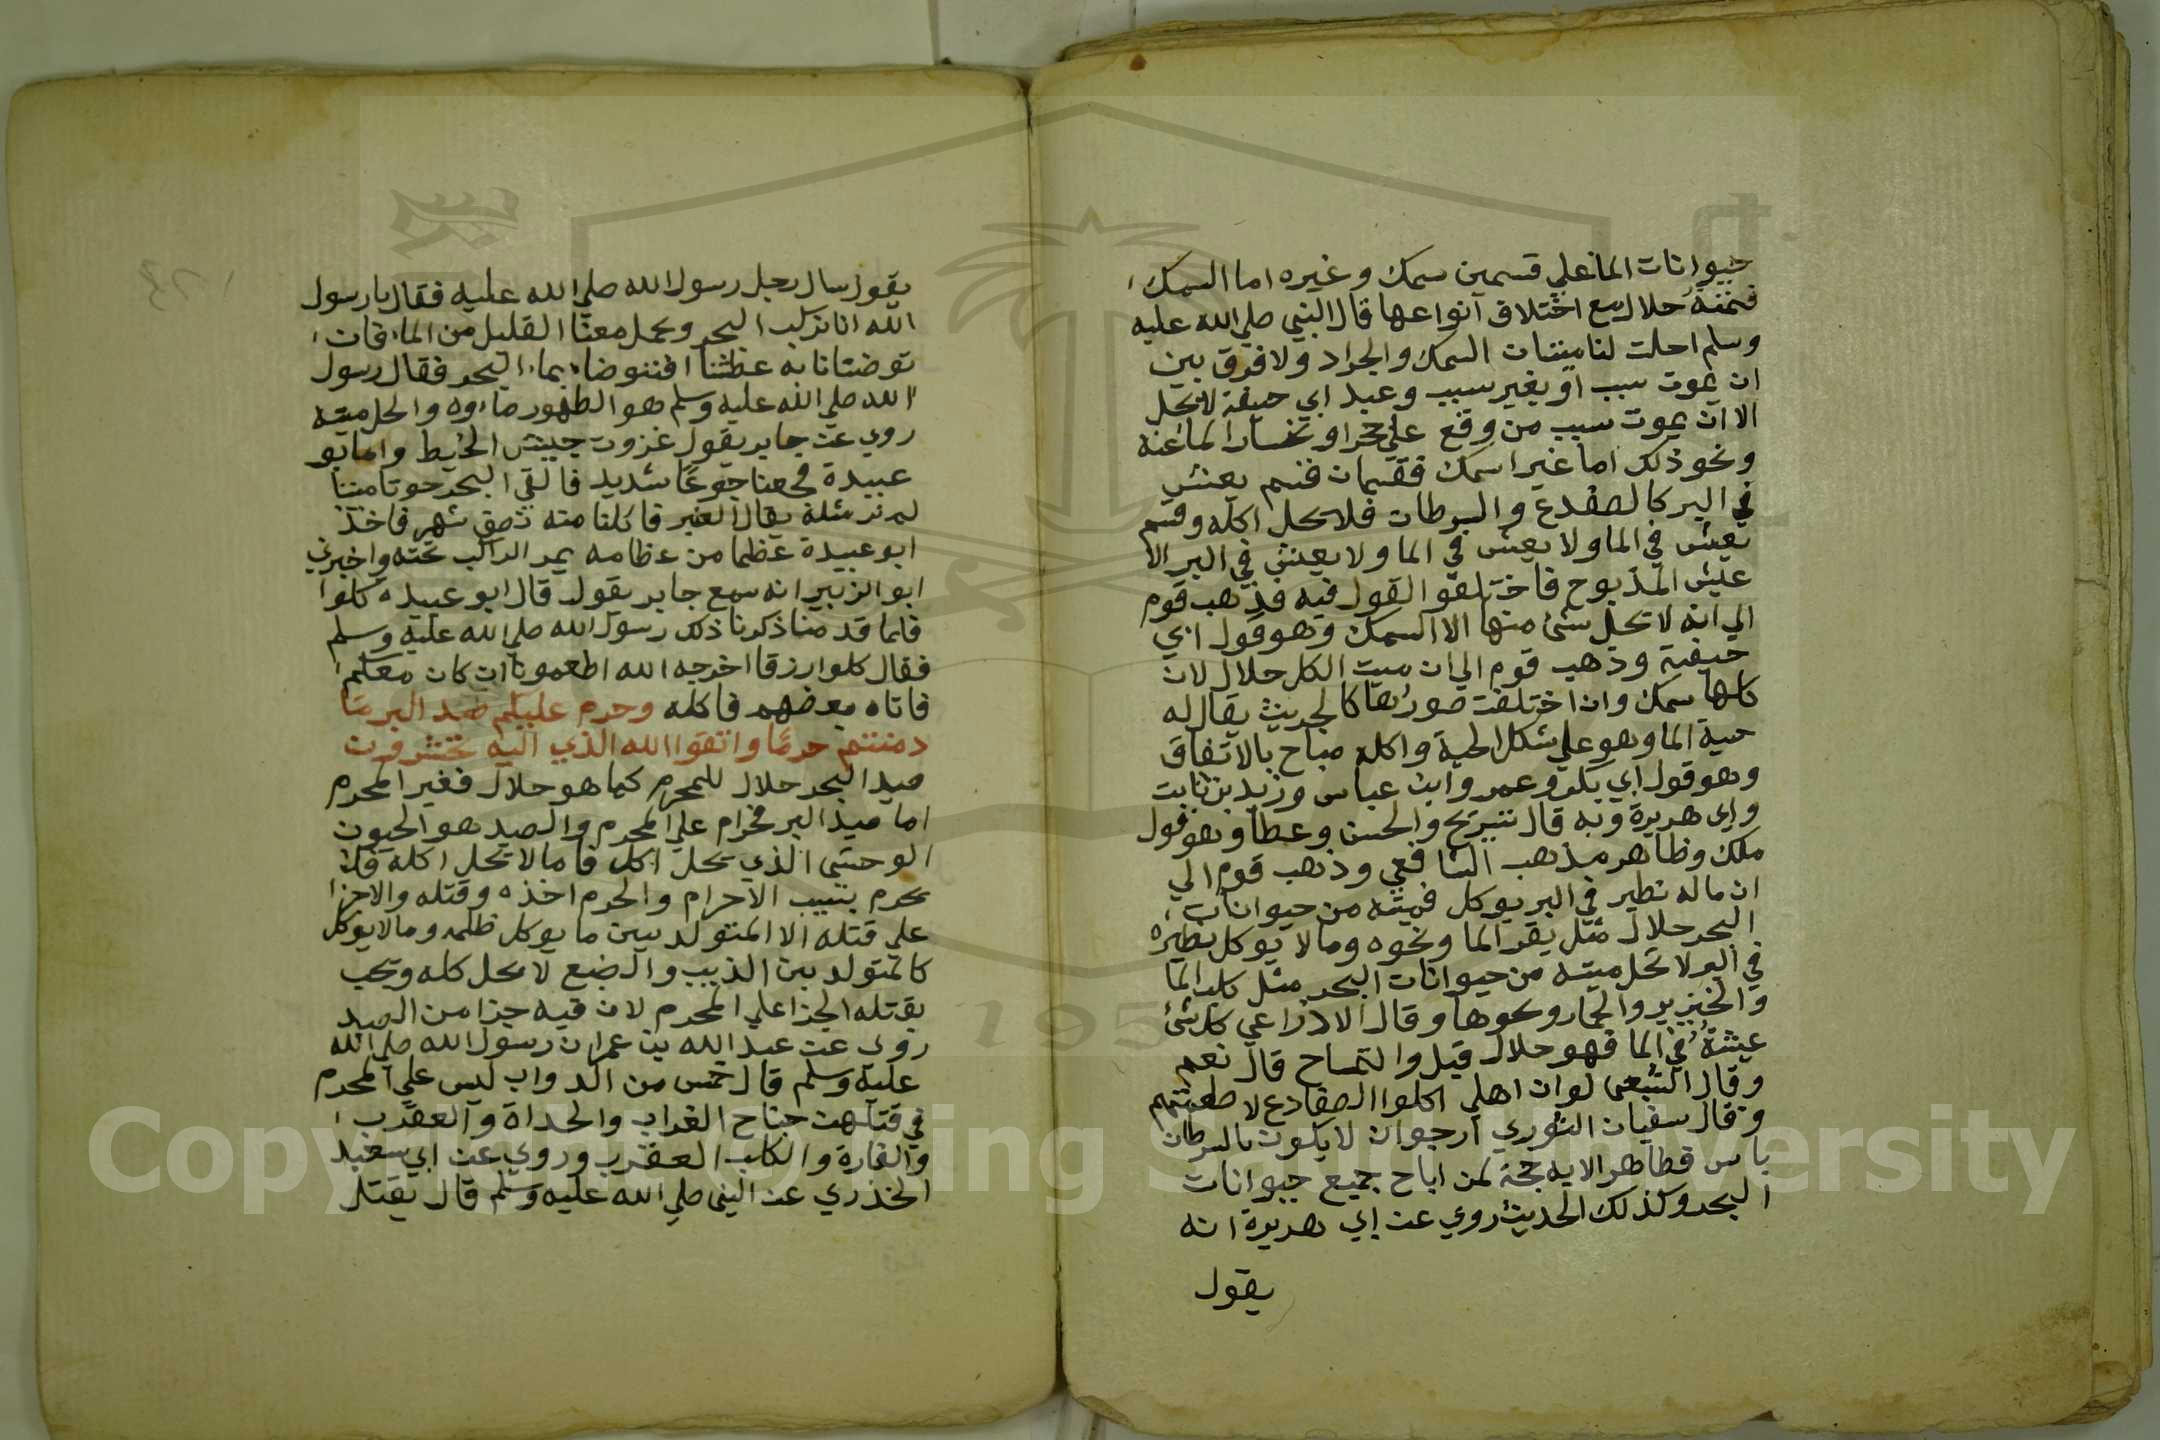 حيوانات الما علي قسمين سمك وغيره اما السمك
فميتة حلال مع اختلاق انواعها قال النبي صلي الله عليه
وسلم احلت لنا ميتتان السمك والجراد ولا فرق بين
ان يموت سبب او بغير سبب وعبد ابي حيفة لا يحل
الا ان يموت سبب من وقع علي حجر او نخسار الما عنه
ونحو ذلك اما غير اسمك فقسمان قسم يعيش
في البر كالضفدع والسرطان فلا يحل اكله وقسم
يعش في الما ولا يعش في الما ولا يعيش في البر الا
عيش المذبوح فاختلفو القول فيه فذهب قوم
الي انه لا يحل شئ منها الا السمك وهو قول ابي
حيفية وذهب قوم الي ان ميت الكل حلال لان
كلها سمك وان اختلفت صورتها كالجريث يقال له
حية الما وهو علي شكل الحية واكله مباح بالاتفاق
وهو قول ابي بكر وعمر وابن عباس وزيد بن ثابت
وابي هريرة وبه قال شريح والحسن وعطا وهو قول
ملك وظاهر مذهب الشافعي وذهب قوم الي
ان ماله نطير في البر يوكل فميته من حيوانات
البحر حلال مثل بقر الما ونحوه وما لا يوكل نطيره
في البر لا تحل ميته من حيوانات البحر مثل كلب الما
والخنزير والحمار وكوها وقال الاوزاعي كل شئ
عيشة في الما فهو حلال قيل والتمساح قال نعم
وقال الشعبي لو ان اهلي اكلوا الضفادع لا طعمتهم
وقال سفيان الثوري ارجوان لا يكون بالسرطان
باس فظاهر الايه حجة لمن اباح جميع حيوانات
البحر وكذلك الحديث روي عن ابي هريرة انه
يقول
يقول سال رجل رسول الله صلي الله عليه فقال يا رسول
الله انا نركب البحر ونحمل معنا القليل من الماء فان
توضئانا به عطشنا افنتوضاء بماء البحر فقال رسول
الله صلي الله عليه وسلم هو الطهور ماءوه والحل ميته
روي عن جابر يقول غزوت جيش الخيط وامابو
عبيدة فجعنا جوعا شديد فالقي البحر حوتا ميتا
لم نر مثلة يقال العنبر فاكلنا منه نصف شهر فاخذ
ابو عبيدة عظما من عظامه يمر الراكب تحته واخبرني
ابو الزبير انه سمع جابر يقول قال ابو عبيدة كلوا
فلما قدمنا ذكرنا ذلك رسول الله صلي الله عليه وسلم
فقال كلوا رزقا اخرجه الله اطعمونا ان كان معكم
فاتاه بعضهم فاكله وحرم عليكم صيد البر ما
دمتم حرما واتقوا الله الذي اليه تحشرون
صيد البحر حلال للمحرم كما هو حلال فغير المحرم
اما صيد البر فحرام علي المحرم والصيد هو الحيون
الوحشي الذي يحل اكله فاما لا تحل اكله فلا
يحرم بسبب الاحرام والحرم اخذه وقتله والاجزا
علي قتله الا المتولد بين ما يوكل ظلمه وما لا يوكل
كالمتولد بين الذيب والضبع لا يحل كله ويجب
بقتله الجزا علي المحرم لان فيه جزا من الصيد
روي عن عبد الله بن عمر ان رسول الله صلي الله
عليه وسلم قال خمس من الدواب ليس علي المحرم
في قتلهن جناح الغراب والحداة والعقرب
والفارة والكلب العقرب وروي عن ابي سعيد
الخذري عن النبي صلي الله عليه وسلم قال يقتل
Copyright © King Saud University
195